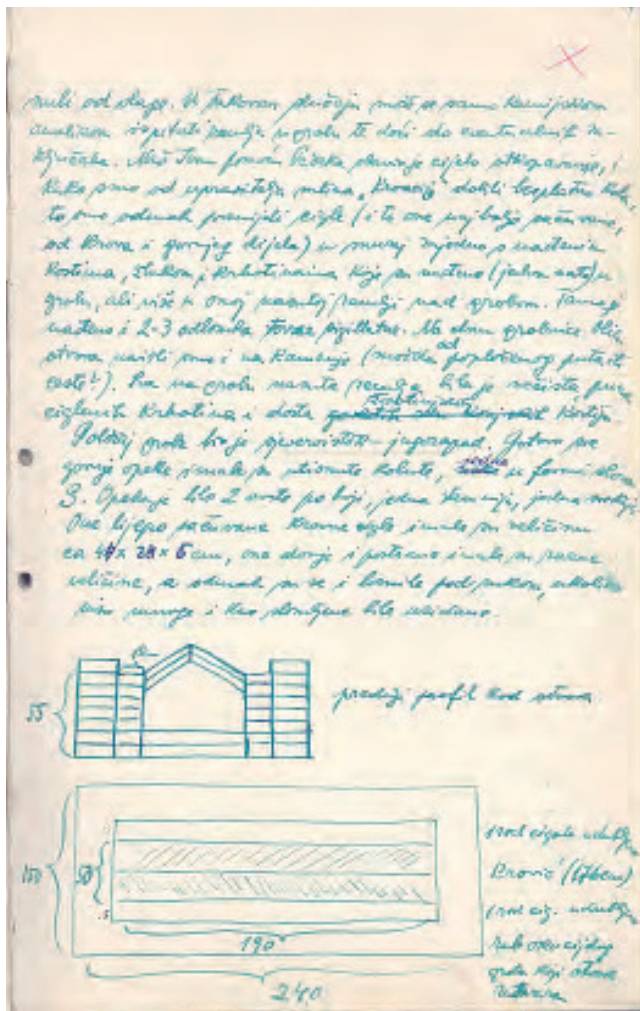 nuli od vlage. U takovom slučaju može se samo kemijskom
analizom ispitati zemlju u grobu te doći do eventualnih za-
ključaka. Ivan pomoću cijelo otkopavanje, i
kako smo od upravitelja mlina „Kronig" dobili besplatno
to smo odmah prenijeli cigle (i to one najbolje sačuvane,
od krova i gornjeg dijela) u muzej zajedno s nađenim
kostima, i krhotinama koje su nađene (jedna) u
grobu, ali više u onoj nasutoj zemlji nad grobom. Tamo je
nađeno i 2-3 odlomka terrae sigillatae. Na dnu grobnice
strona naišli smo i na kamenje (možda od popločenog puta il
ceste!). Sva na grobu nasuta zemlja bila je nečista, puna
ciglenih krhotina i dosta kostiju
Položaj groba bio je sjeveroistok - jugozapad. Gotovo sve
gornje opeke imale su utisnute kolute, jedna u formi slova
S. Opeka je bilo 2 vrste po boji, jedna tamnija, jedna svetlija
One lijepo sačuvane krovne cigle imale su veličinu
ca 4 x 28 x 5 cm, one donje i postrane imale su razne
veličine, a odmah su se i lomile pod rukom, ukoliko
nisu mnoge i kao slomljene bile uzidane.
55
prednji profil kod otvora
150
50
190
240
ispod cigala udubljen
krović (17 cm)
ispod cig. udubljen
rub oko cijelog
groba koji otvor
zatvara